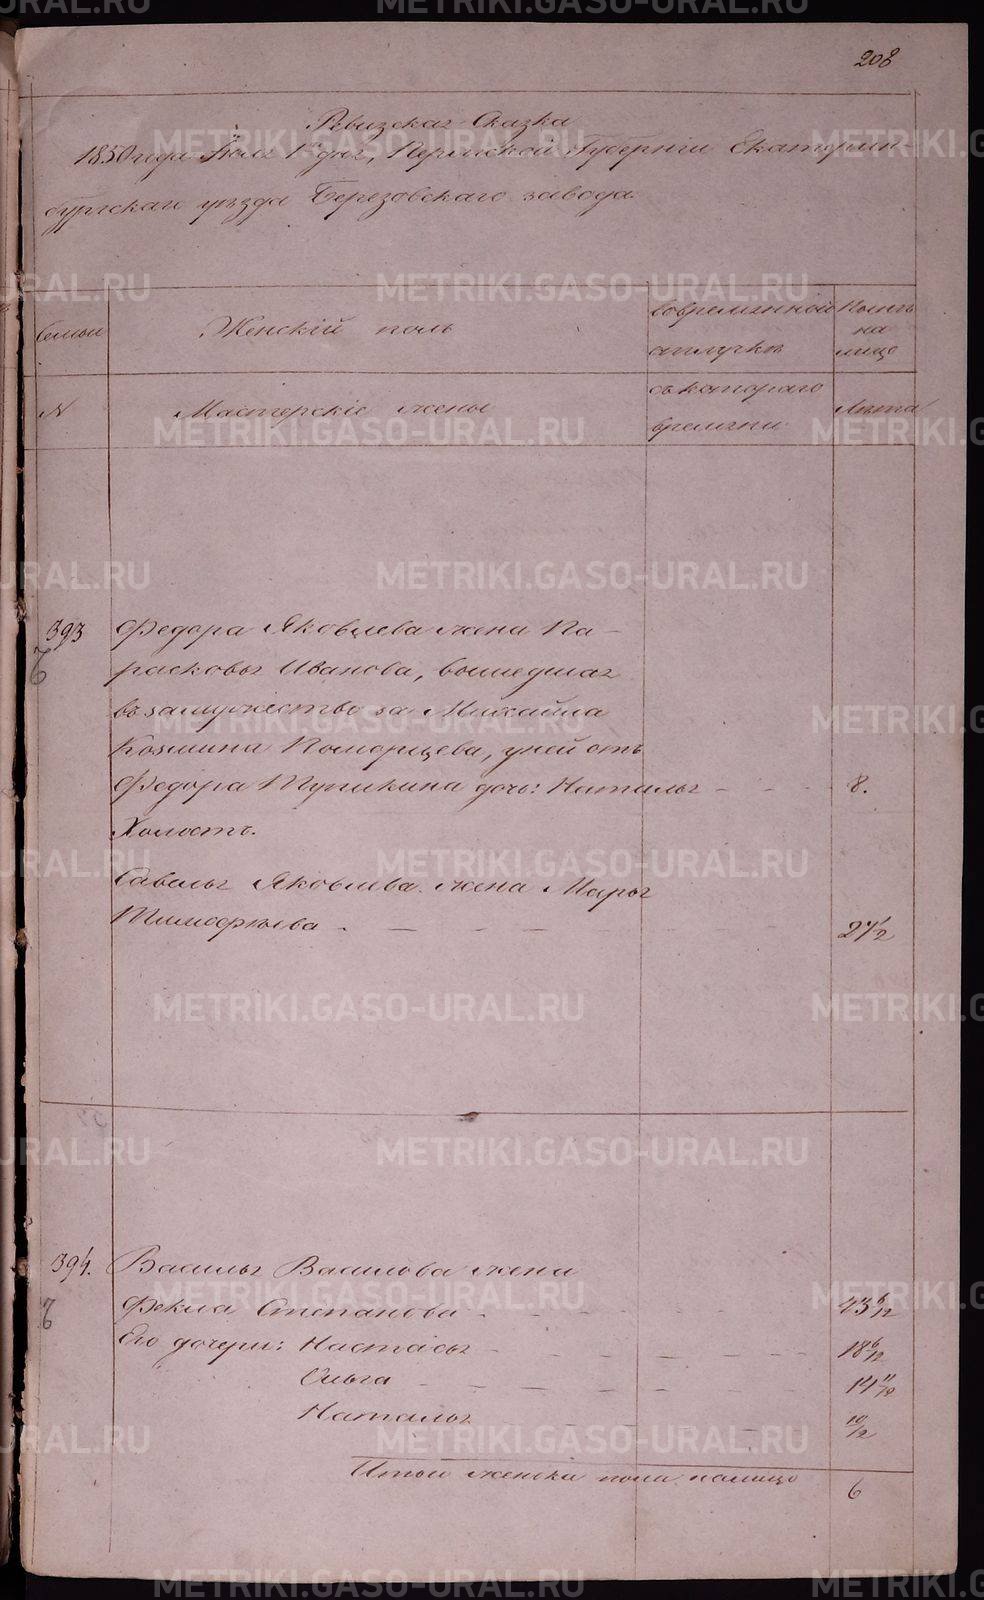 208
Ревизская Сказка
1850 года Iюля 1 дня, Пермской Губернiи Екатерин-
бургскаго уѣзда Березовскаго завода.
Семьи
Женскiй полъ
во временной
отлучкѣ
Нынѣ
на
лицо
N
Мастерскiе жены
съ котораго
времени
Лѣта
393
Федора Яковлева жена Па-
расковья Иванова, вошедшая
въ замужество за Михаила
Козмина Поморцева, у ней отъ
Федора Тупикина дочь: Наталья - - - 8.
Холостъ.
Савелья Яковлева жена Марья
Тимофѣева - - - - 27 1/2
394.
Василья Васильева жена
Фекла Степанова - - - 43 6/12
Его дочери: Настасья - - - 18 6/12
Ольга - - - 14 11/12
Наталья - - - 10/12
Итого женска пола налицо 6
METRIKI.GASO-URAL.RU